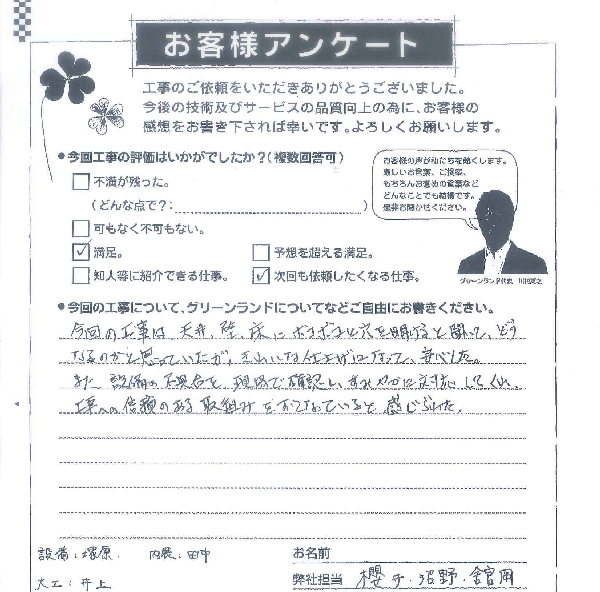 お客様アンケート
工事のご依頼をいただきありがとうございました。
今後の技術及びサービスの品質向上の為に、お客様の
感想をお書き下されば幸いです。よろしくお願いします。
●今回工事の評価はいかがでしたか?(複数回答可)
不満が残った。
(どんな点で?: )
可もなく不可もない。
満足。
予想を超える満足。
知人等に紹介できる仕事。
次回も依頼したくなる仕事。
お客様の声が私たちを動くします。
厳しいお言葉、ご提案、
もちろんお褒めの言葉など
どんなことでも結構です。
是非お聞かせください。
グリーンランド代表
●今回の工事について、グリーンランドについてなどご自由にお書きください。
今回の工事は、天井、壁、床にボコボコと穴を開けると聞いて、どう
なるのかと思っていたが、きれいな仕上げになって、安心した。
また、設備の不具合を、現場で確認し、すみやかに対応してくれ、
工事への信頼のある取組みをおこなっていると感じられた。
設備:塚原. 内装:田中
大工:井上
お名前
弊社担当 櫻井・沼野・舘岡